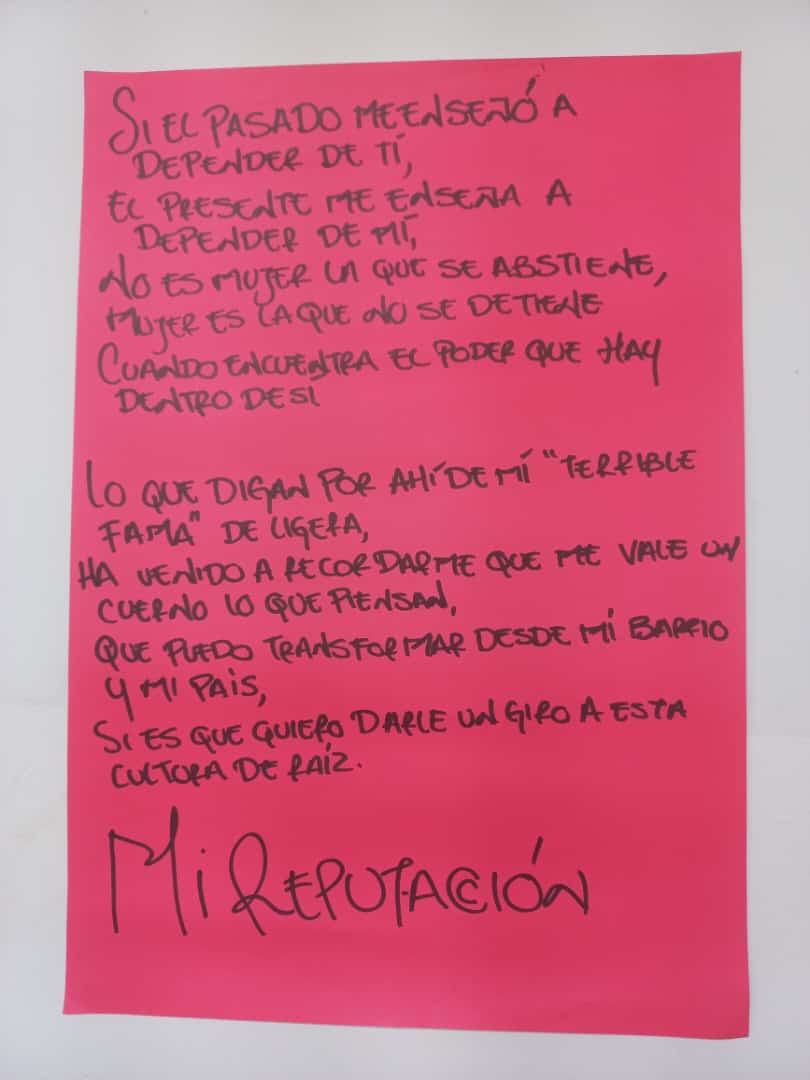 SI EL PASADO ME ENSEÑÓ A
DEPENDER DE TÍ,
EL PRESENTE ME ENSEÑA A
DEPENDER DE MÍ,
NO ES MUJER LA QUE SE ABSTIENE,
MUJER ES LA QUE NO SE DETIENE
CUANDO ENCUENTRA EL PODER QUE HAY
DENTRO DE SÍ
LO QUE DIGAN POR AHÍ DE MÍ "TERRIBLE
FAMA" DE LIGERA,
HA VENIDO A RECORDARME QUE ME VALE UN
CUERNO LO QUE PIENSAN,
QUE PUEDO TRANSFORMAR DESDE MI BARRIO
Y MI PAÍS,
SI ES QUE QUIERO DARLE UN GIRO A ESTA
CULTURA DE RAÍZ.
MI REPUTACCIÓN